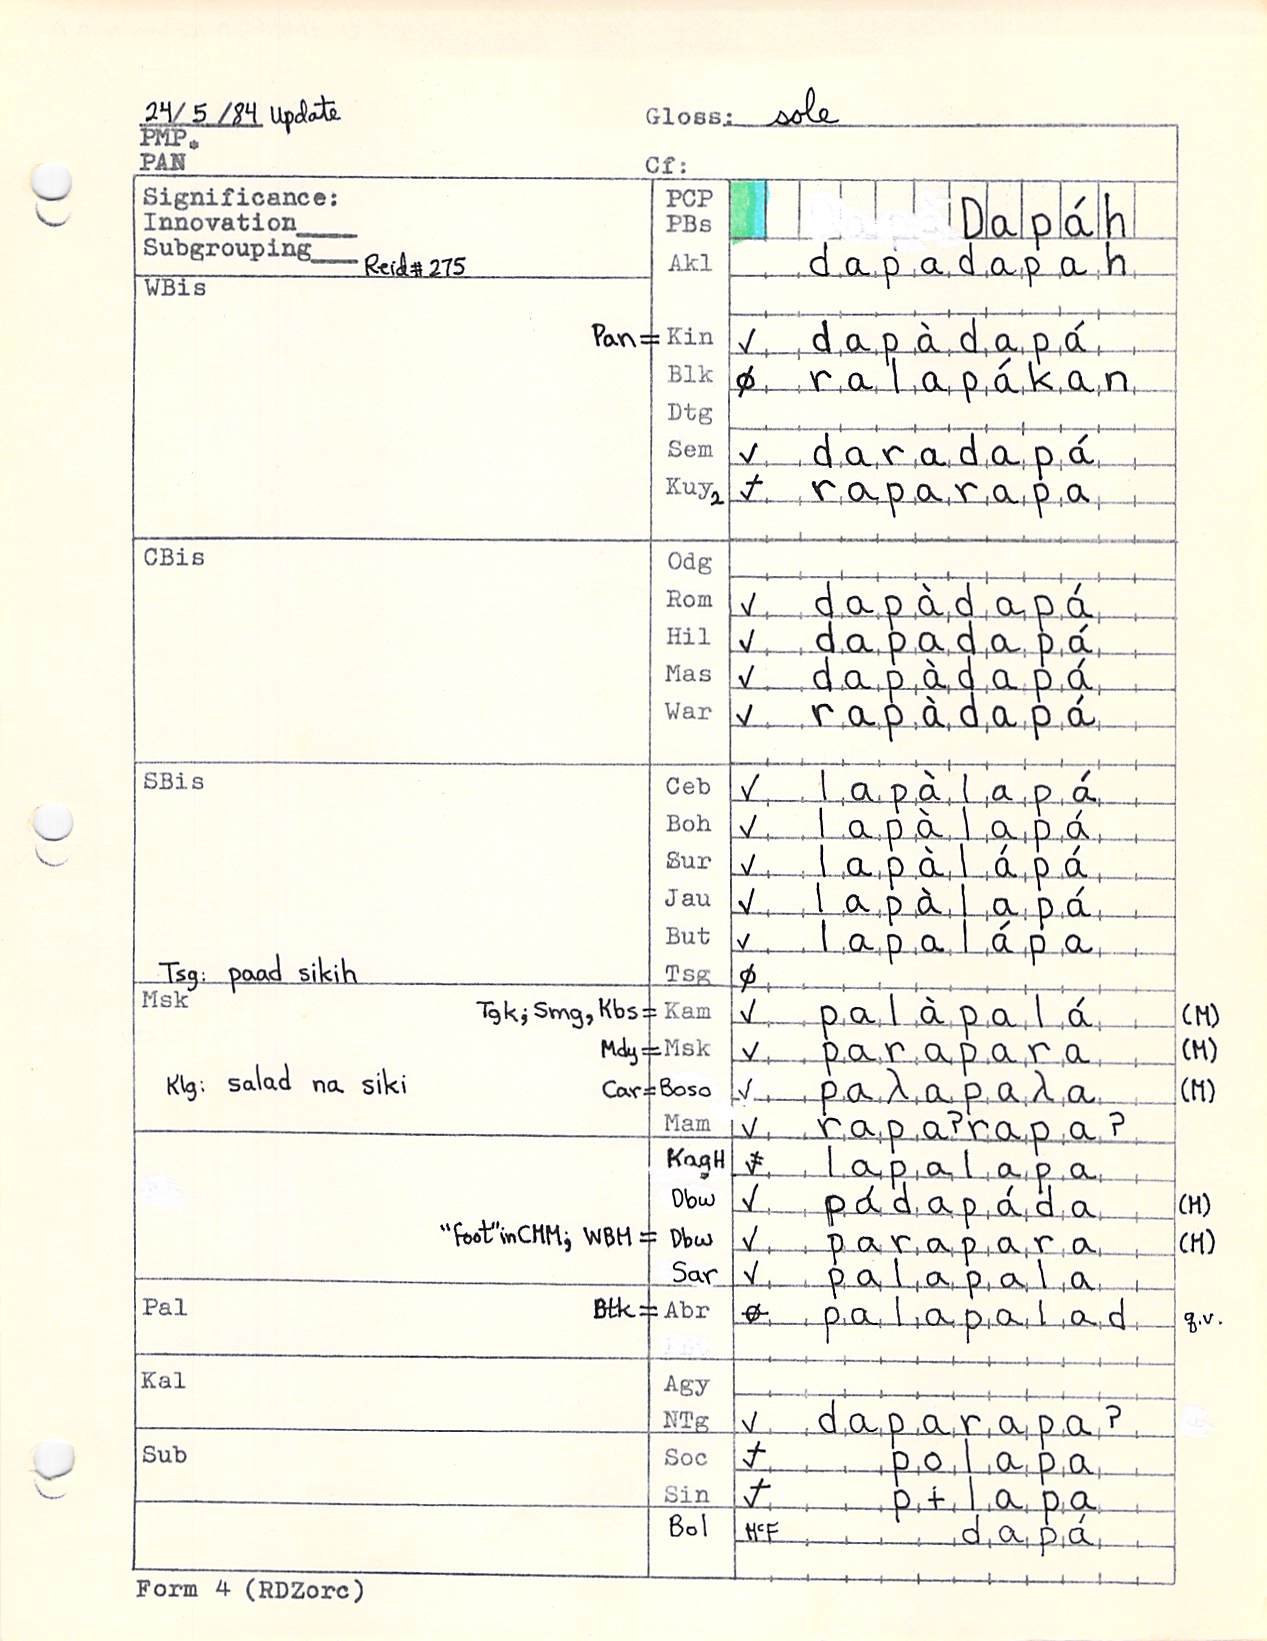 24/5/84 Update Gloss: sole
PMP.
PAN Cf:
Significance: PCP
Innovation____ PBs Dapáh
Subgrouping___ Reid#275 Akl dapadapah
WBis
Pan=Kin ✓ dapàdapá
Blk ∅ ralapákan
Dtg
Sem ✓ daradapá
Kuy2 † raparapa
CBis Odg
Rom ✓ dapàdapá
Hil ✓ dapadapá
Mas ✓ dapàdapá
War ✓ rapàdapá
SBis Ceb ✓ lapàlapá
Boh ✓ lapàlapá
Sur ✓ lapàlápá
Jau ✓ lapàlapá
But ✓ lapalápa
Tsg: paad sikih Tsg ∅
Msk Tgk; Smg, Kbs=Kam ✓ palàpalá (M)
Mdy=Msk ✓ parapara (M)
Klg: salad na siki Car=Boso ✓ paλapaλa (M)
Mam ✓ rapa?rapa?
KagH lapalapa
Dbw ✓ pádapáda (M)
"foot" in CMM; WBM = Dbw ✓ parapara (M)
Sar ✓ palapala
Pal Btk=Abr ∅ palapalad q.v.
Kal Agy
NTg ✓ daparapa?
Sub Soc † polapa
Sin † pɨlapa
Bol McF dapá
Form 4 (RDZorc)